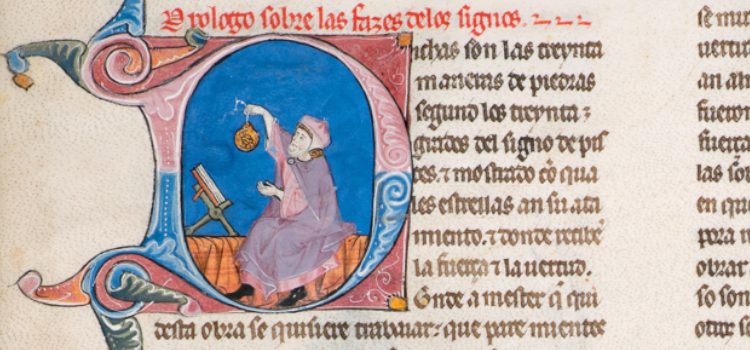 Prologo sobre las fazes delos signos.
Dichas son las treynta
maneras de piedras
segund los treynta ⁊
grados del signo de pis
ces. ⁊ mostrado cõ qua
les estrellas an su ata
miento. ⁊ donde recibẽ
la fuerça ⁊ la uertud.
Onde a mester q̃ qui
desta obra se quisiere trabaiar: que pare mientes
se mu
uertu
an al
fuero
fuerça
las sõ
en qu
pora
obrar
so son